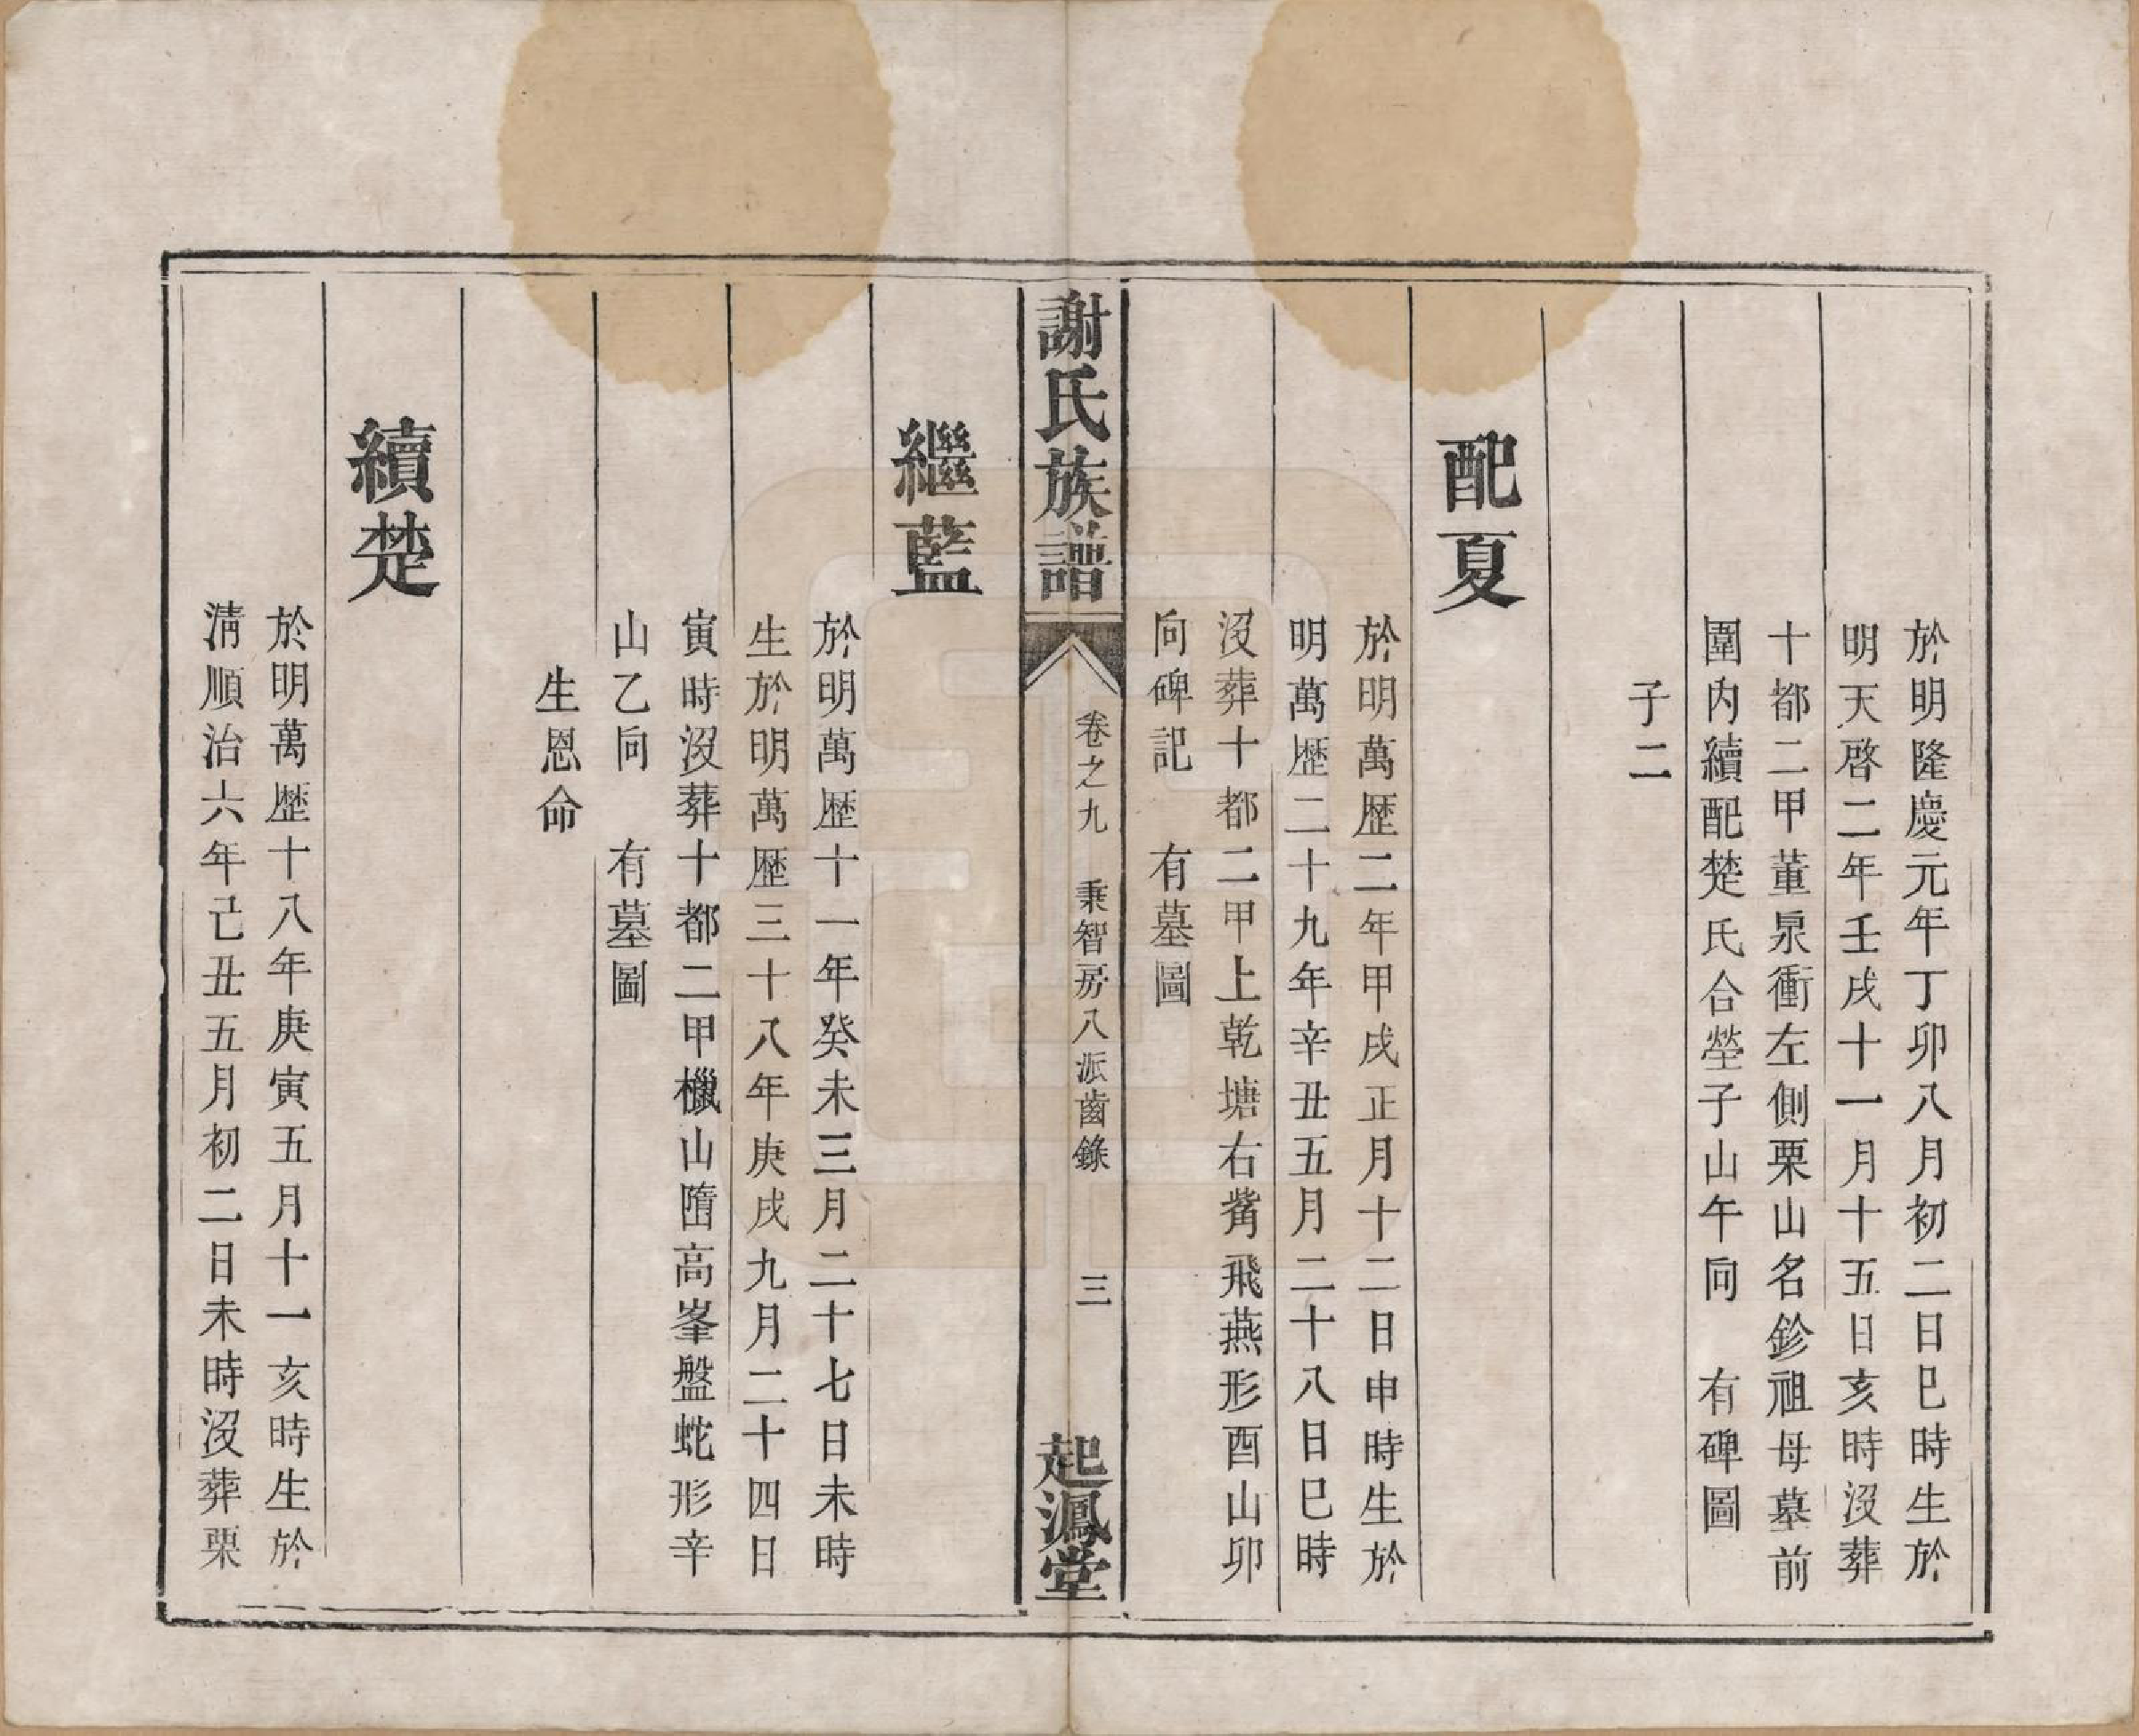 於明隆慶元年丁卯八月初二日巳時生於
明天啓二年壬戌十一月十五日亥時沒葬
十都二甲董泉衝左側栗山名鈐祖母墓前
圍內續配楚氏合塋子山午向　有碑圖
子二
配夏
於明萬歷二年甲戌正月十二日申時生於
明萬歷二十九年辛丑五月二十八日巳時
沒葬十都二甲上乾塘右觜飛燕形酉山卯
向碑記　有墓圖
謝氏族譜
卷之九　秉智房八派齒錄　三
起鳳堂
繼藍
於明萬歷十一年癸未三月二十七日未時
生於明萬歷三十八年庚戌九月二十四日
寅時沒葬十都二甲欙山𨺗高峯盤蛇形辛
山乙向　有墓圖
生恩命
續楚
於明萬歷十八年庚寅五月十一亥時生於
淸順治六年己丑五月初二日未時沒葬栗